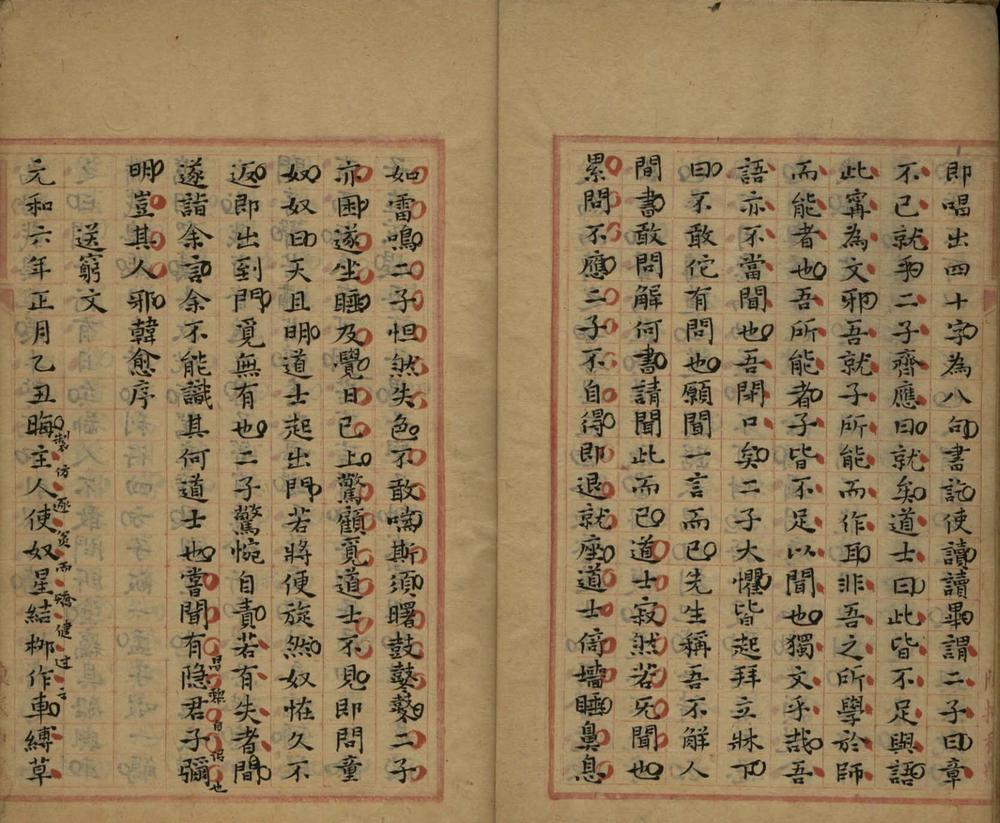 即唱出四十字為八句書訖使讀讀畢謂二子曰章
不已就乎二子齊應曰就矣道士曰此皆不足與語
此寧為文邪吾就子所能而作耳非吾之所學於師
而能者也吾所能者子皆不足以聞也獨文乎哉吾
語亦不當聞也吾閉口矣二子大懼皆起拜立牀下
曰不敢佗有問也願聞一言而已先生稱吾不解人
間書敢問解何書請聞此而已道士寂然若旡聞也
累問不應二子不自得即退就座道士倚墻睡鼻息
如雷鳴二子怛然失色不敢喘斯須曙鼓鼕鼕二子
亦困遂坐睡及覺日已上驚顧覓道士不見即問童
奴奴曰天且明道士起出門若將便旋然奴恠久不
返即出到門覓無有也二子驚惋自責若有失者間
遂詣余言余不能識其何道士也嘗聞有隐君子彌
昌黎自謂也
明豈其人邪韓愈序
送窮文
元和六年正月乙丑晦主人使奴星結栁作車縛草
製仿逐貧而矯健过之